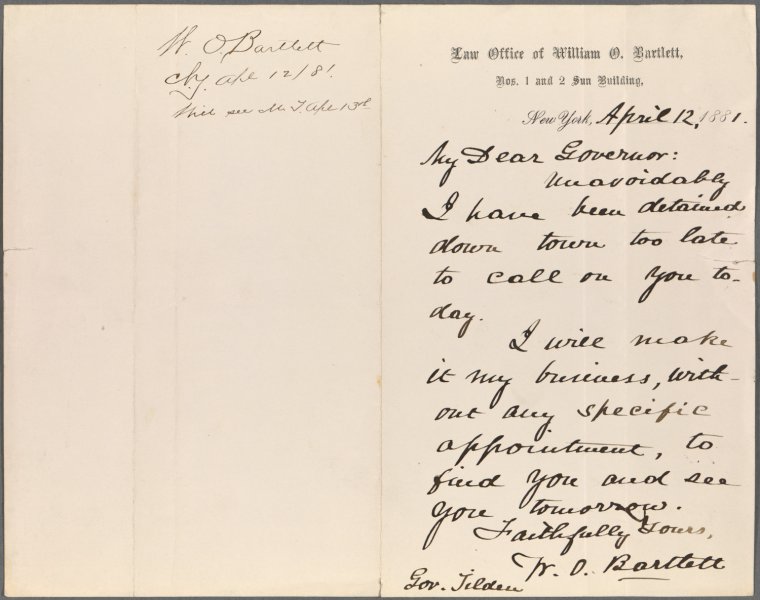 W. O. Bartlett
N.Y. Apl 12/81.
Will see Mr T. Apl 13th
Law Office of William O. Bartlett,
Nos. 1 and 2 Sun Building,
New York, April 12, 1881.
My Dear Governor:
Unavoidably
I have been detained
down town too late
to call on you to-
day.
I will make
it my business, with-
out any specific
appointment, to
find you and see
you tomorrow.
Faithfully Yours,
W. O. Bartlett
Gov. Tilden